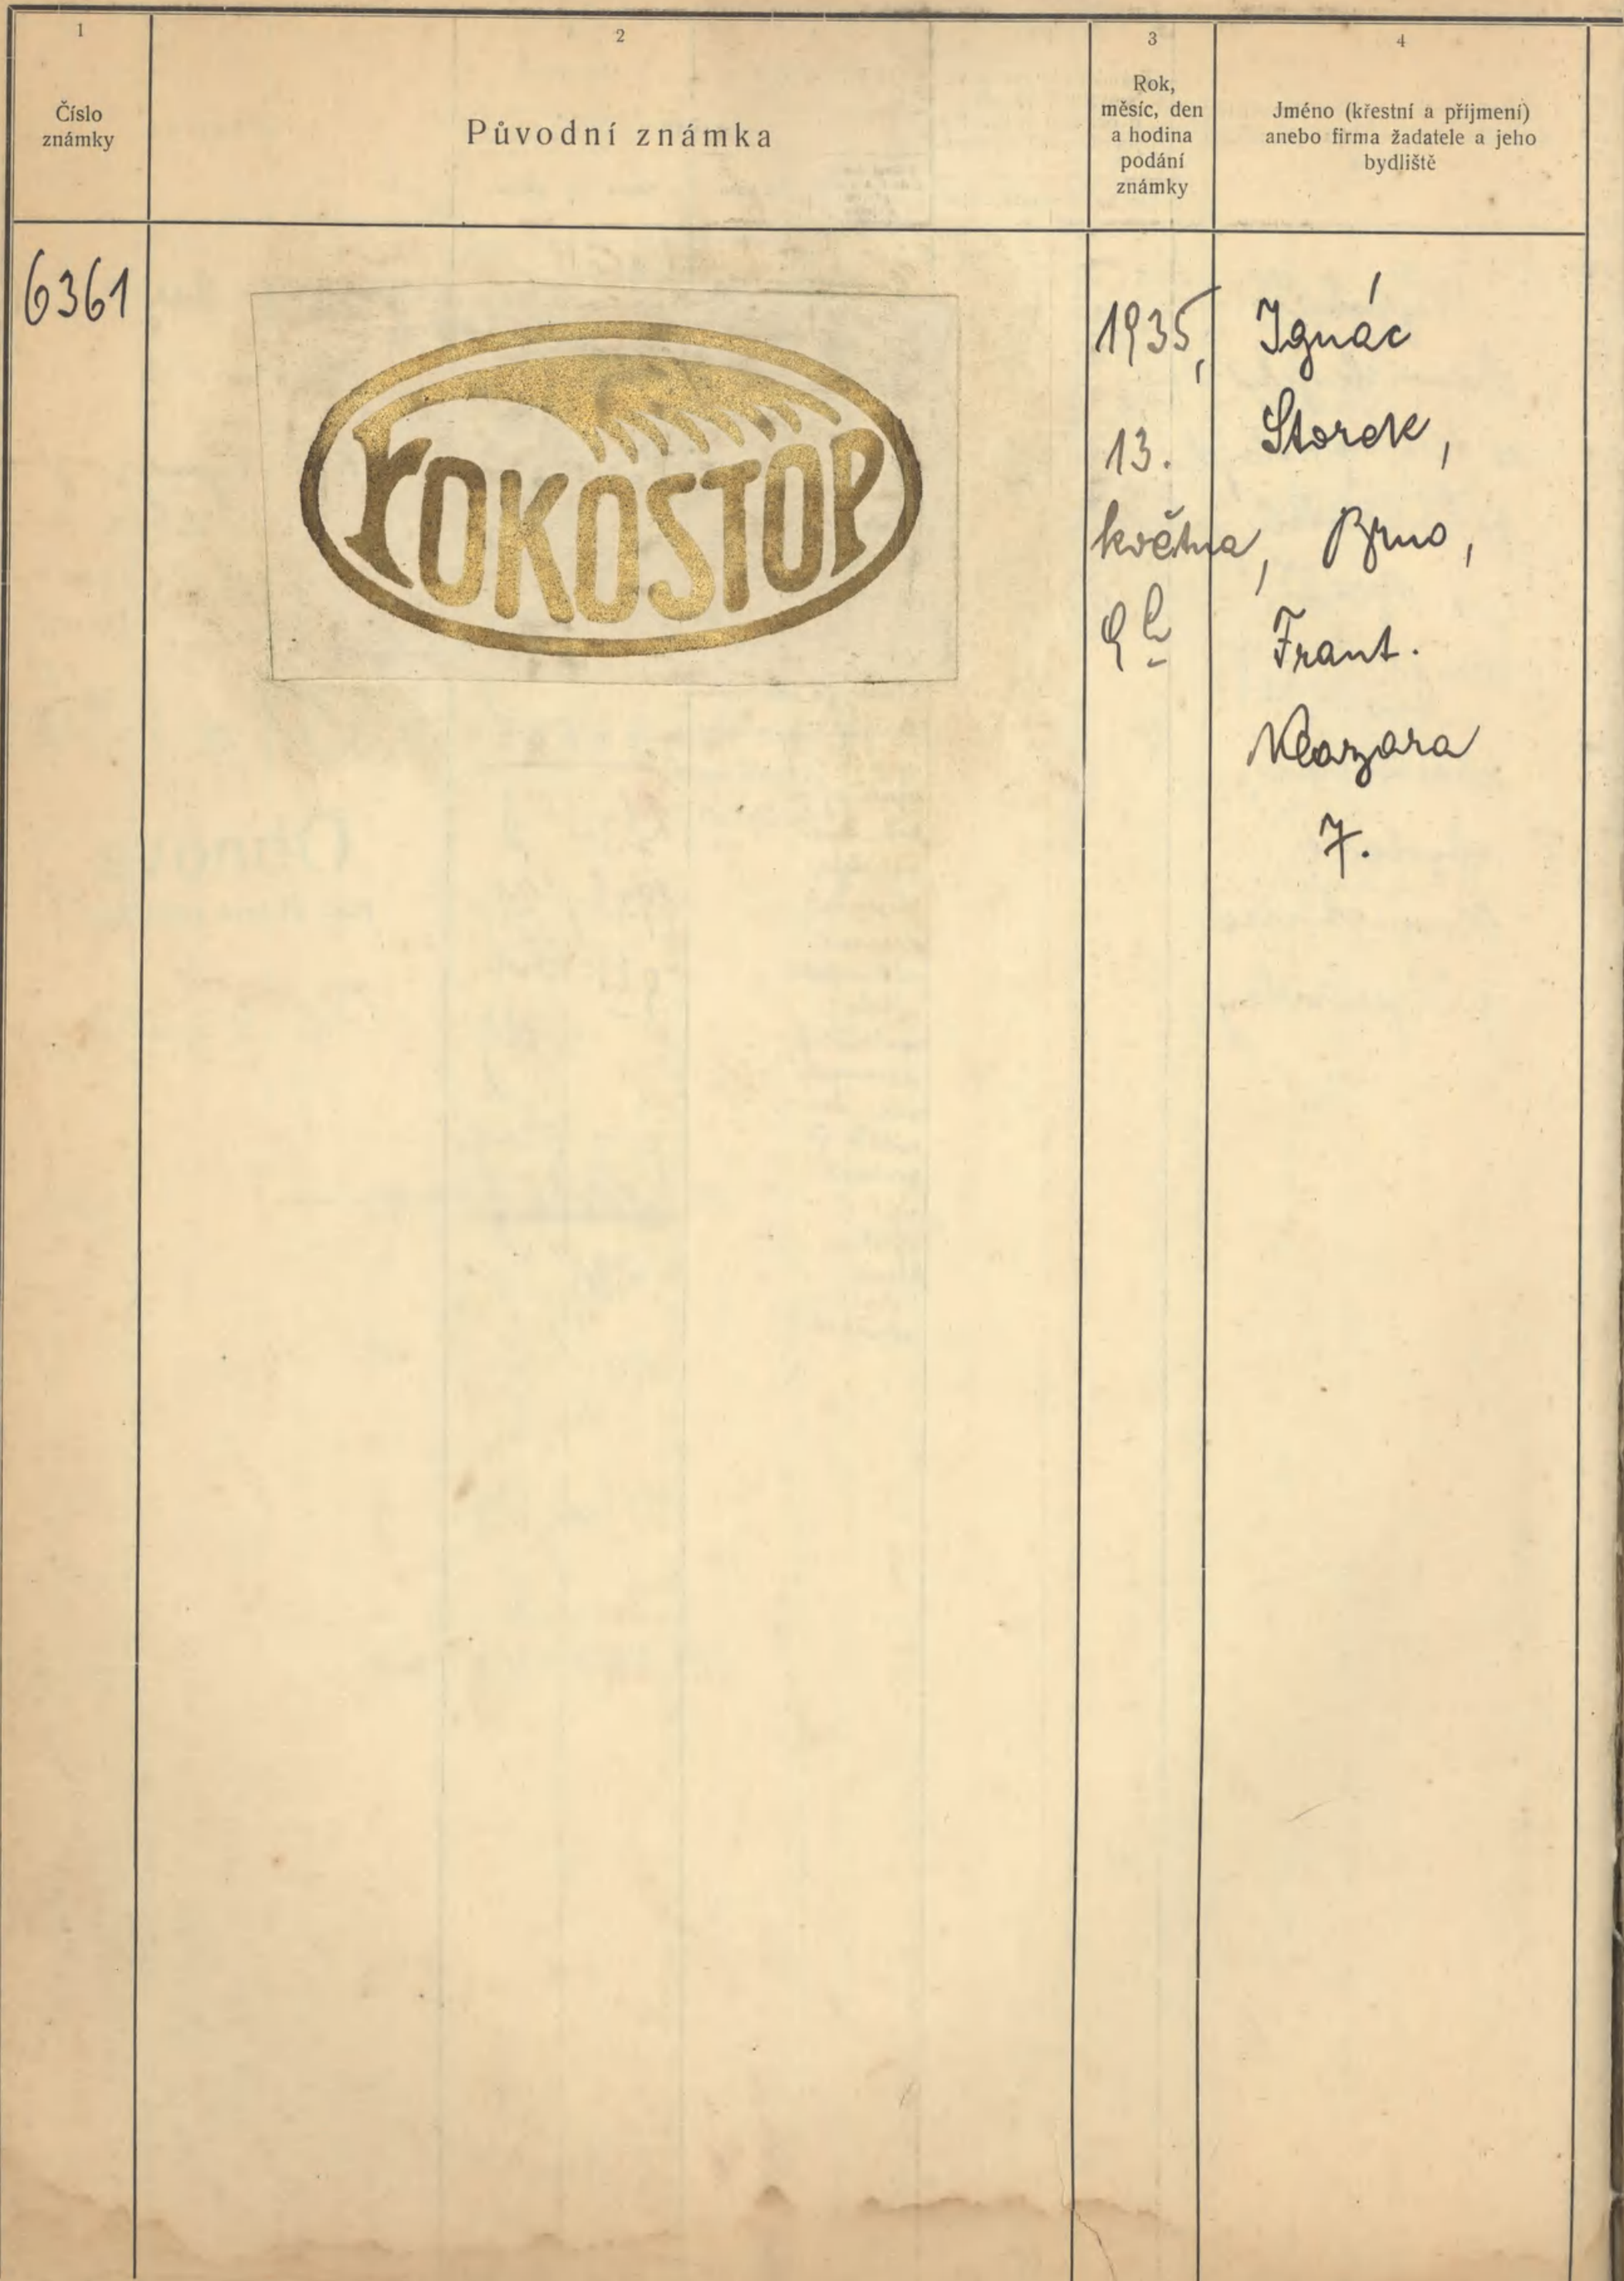 1
Číslo
známky
2
Původní známka
3
Rok,
měsíc, den
a hodina
podání
známky
4
Jméno (křestní a příjmení)
anebo firma žadatele a jeho
bydliště
6361
rOKOSTOP
1935,
13.
května,
9 h
Ignác
Storek,
Brno,
Frant.
7.